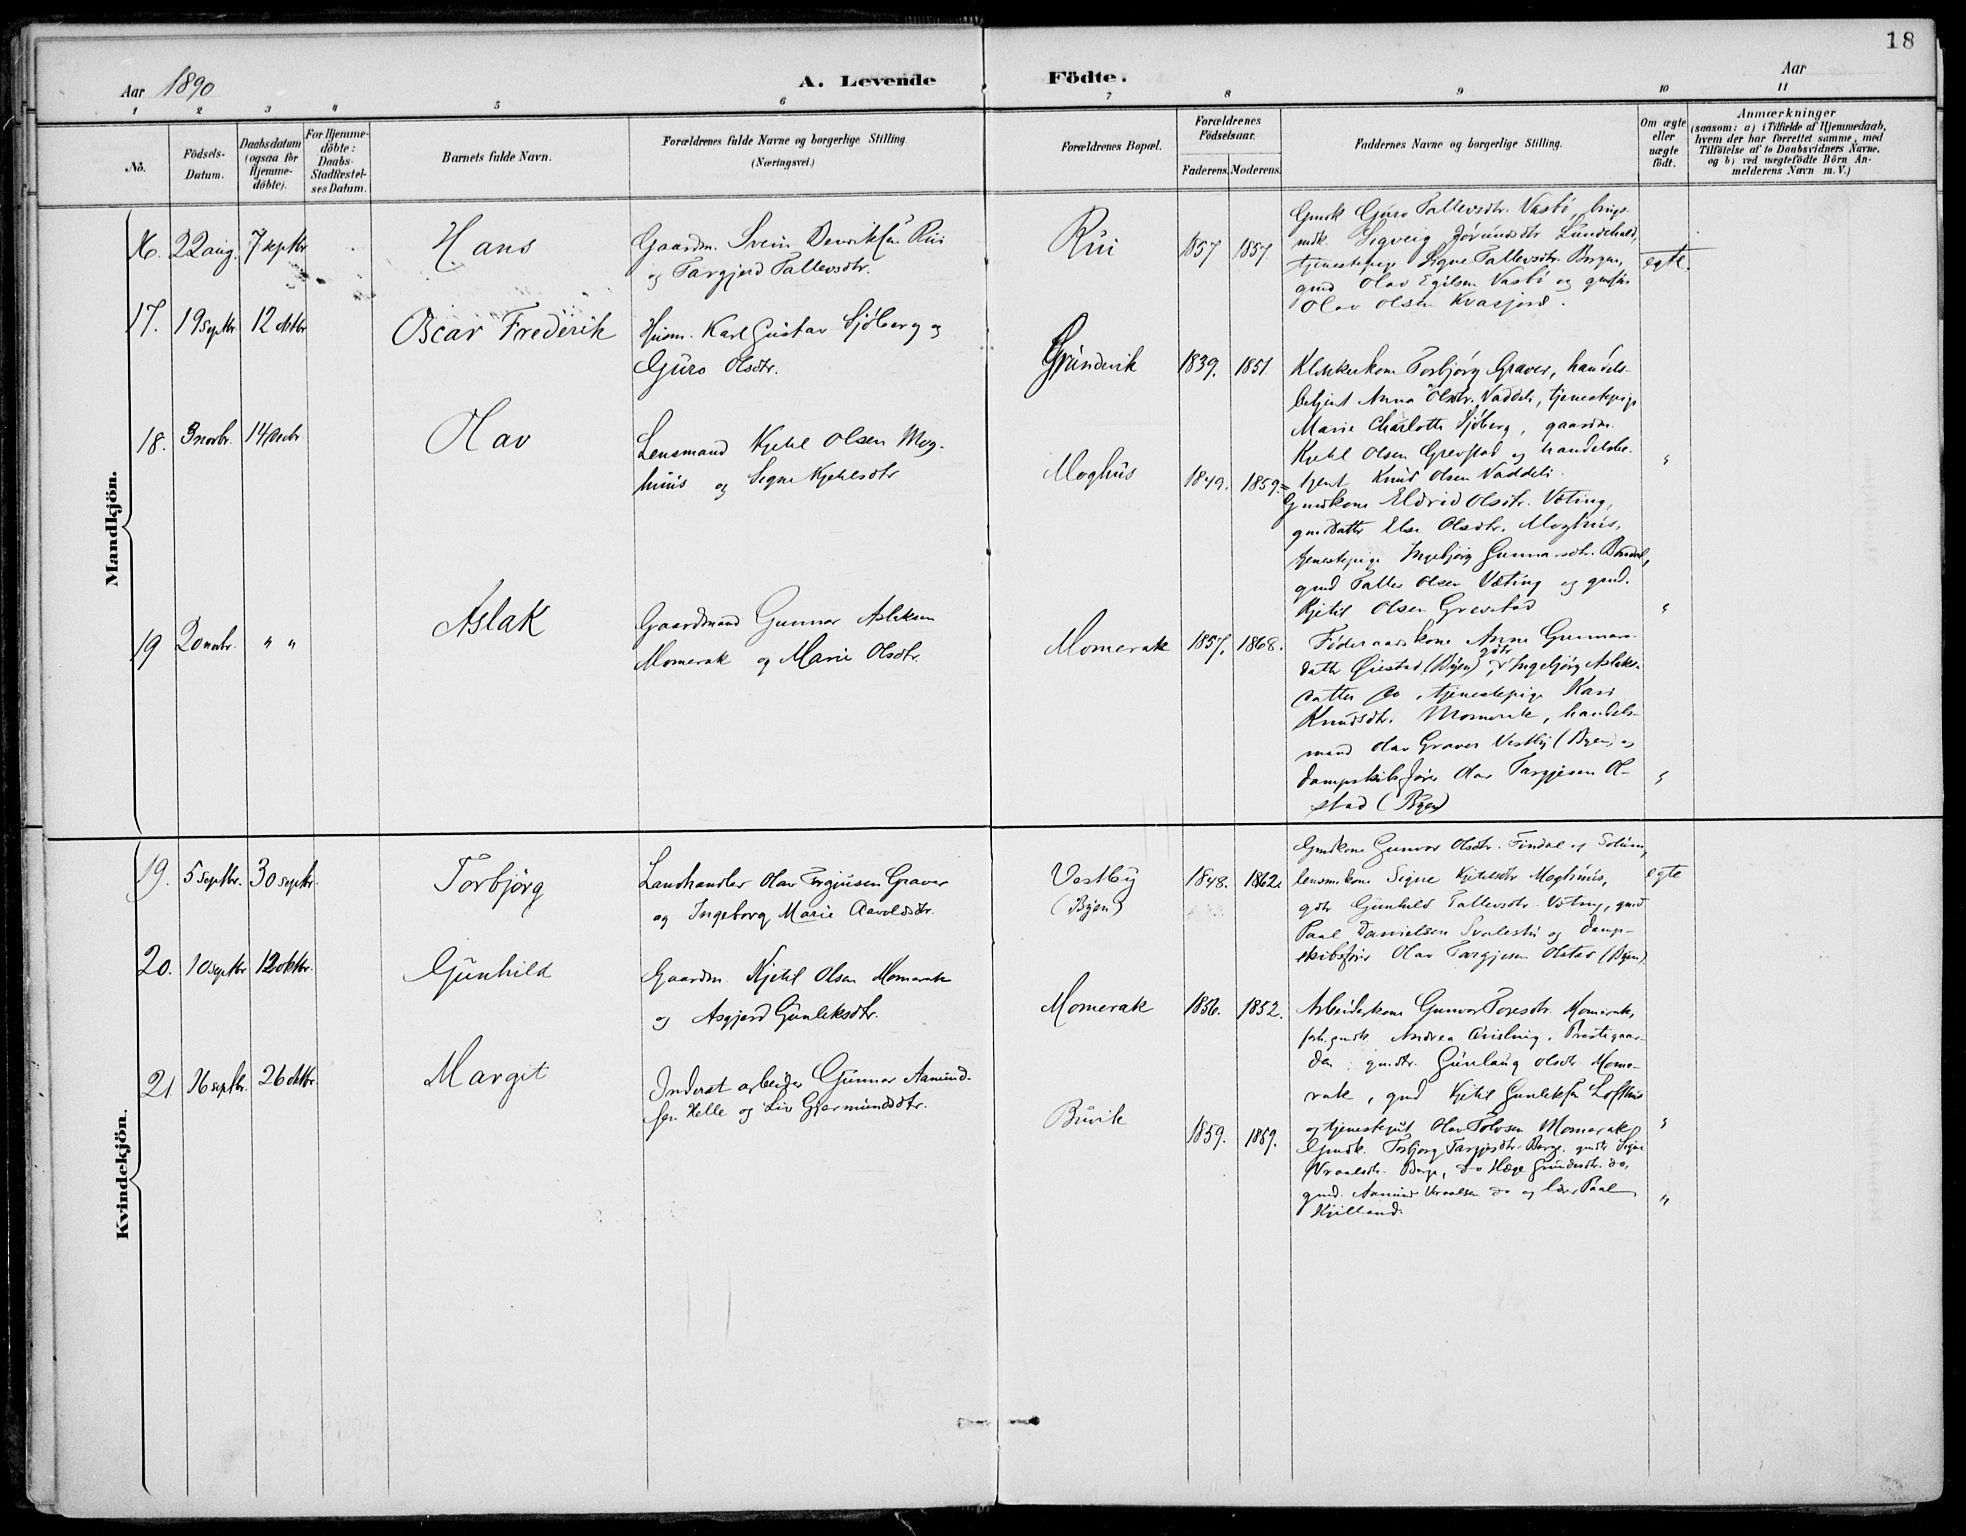 18
Aar 1890
A. Levende Födte.
Aar
1 2 3 4 5 6 7 8 9 10 11
No.
Födsels-
Datum.
Daabsdatum
(ogsaa for
Hjemme-
döbte).
For Hjemme-
döbte:
Daabs-
Stadfæstel-
ses Datum.
Barnets fulde Navn.
Forældrenes fulde Navne og borgerlige Stilling
(Næringsvei.)
Forældrenes Bopæl.
Forældrenes
Födselsaar.
Faderens. Moderens.
Faddernes Navne og borgerlige Stilling.
Om ægte
eller
uægte
födt.
Anmærkninger
(saasom: a) i Tilfælde af Hjemmedaab,
hvem der har forrettet samme, med
Tilföielse af to Daabsvidners Navne,
og b) ved uægtefödte Börn An-
melderens Navn m. V.)
Mandkjön.
16. 22 aug. 7 septbr
Hans
Gaardm. Svein Rui
og Targjerd Tallevsdtr.
Rui
1857 1857
Gmdk Guro Tallevsdtr. Vasbö, brugs-
mdk. Sigveig Jörundsdtr
tjenestepige Signe Tallevsdtr. Borgen,
gmd Olav Egilsen Vasbö og
Olav Olsen Kvasjord.
egte.
17. 19 septbr 12 oktbr
Oscar Frederik
Husm. Karl Gustav Sjöberg og
Guro Olsdtr.
Grundevik
1839. 1851
Klokkerkone Torbjörg Graver, handels-
betjent Anna Olsdtr. Vaddeli, tjenestepige
Marie Charlotte Sjöberg, gaardm.
Kjetil Olsen Grevstad og handelsbe-
tjent Knud Olsen Vaddeli.
"
18. 3 novbr. 14 decbr
Olav
Lensmand Kjetil Olsen Mog-
huus og Signe Kjetilsdtr
Moghus
1849. 1859.
Gmdkone Eldrid Olsdtr. Væting,
gmddatter Else Olsdtr. Moghus,
tjenestepige Ingebjörg Gunnarsdtr.
gmd Tallev Olsen Væting og gmd.
Kjetil Olsen Grevstad
"
19 20 novbr. " "
Aslak
Gaardmand Gunnar Aslaksen
Momerak og Marie Olsdtr.
Momerak
1857. 1868.
Föderaadskone Anne Gunnars-
datter (Byen) gdtr Ingebjörg Aslaks-
datter do, tjenestepige Kari
Knudsdtr. Momerak, handels-
mand Olav Graver Vestby (Byen) og
dampskibsförer Olav Targjesen Ol-
stad (Byen)
"
Kvindekjön.
19. 5 septbr. 30 septbr.
Torbjörg
Landhandler Olav Torgjusen Graver
og Ingeborg Marie Aavoldsdtr.
Vestby
(Byen)
1848. 1862.
Gmdkone Gunvor Olsdtr. Findal og Solum,
lensmkone Signe Kjetilsdtr Moghus,
gdtr Gunhild Tallevsdtr. Væting, gmd
Paal Danielsen og damp-
skibsförer Olav Targjesen Olstad (Byen)
egte
20. 10 septbr 12 oktbr.
Gunhild
Gaardm. Kjetil Olsen Momerak
og Asgjerd Gunleksdtr.
Momerak
1856. 1852.
Arbeiderkone Gunvor Toresdtr. Momerak,
Andrea Qvisling, Prestegaar-
den, gmdtr. Gunlaug Olsdtr Mome-
rak, gmd Kjetil Gunleksen Lofthus
og tjenestegut Olav Tolvsen Momerak
"
21 16 septbr. 26 oktbr.
Margit
Inderst arbeider Gunnar Aamund-
sen Helle og Liv Gjermundsdtr.
Buvik
1859. 1859.
Gmdk. Torbjörg Targjesdtr. Berge, gmdtr Signe
Vraalsdtr. Berge, do Hæge do,
gmd. Aamund Vraalsen do og lærer Paal
Kjilland.
"